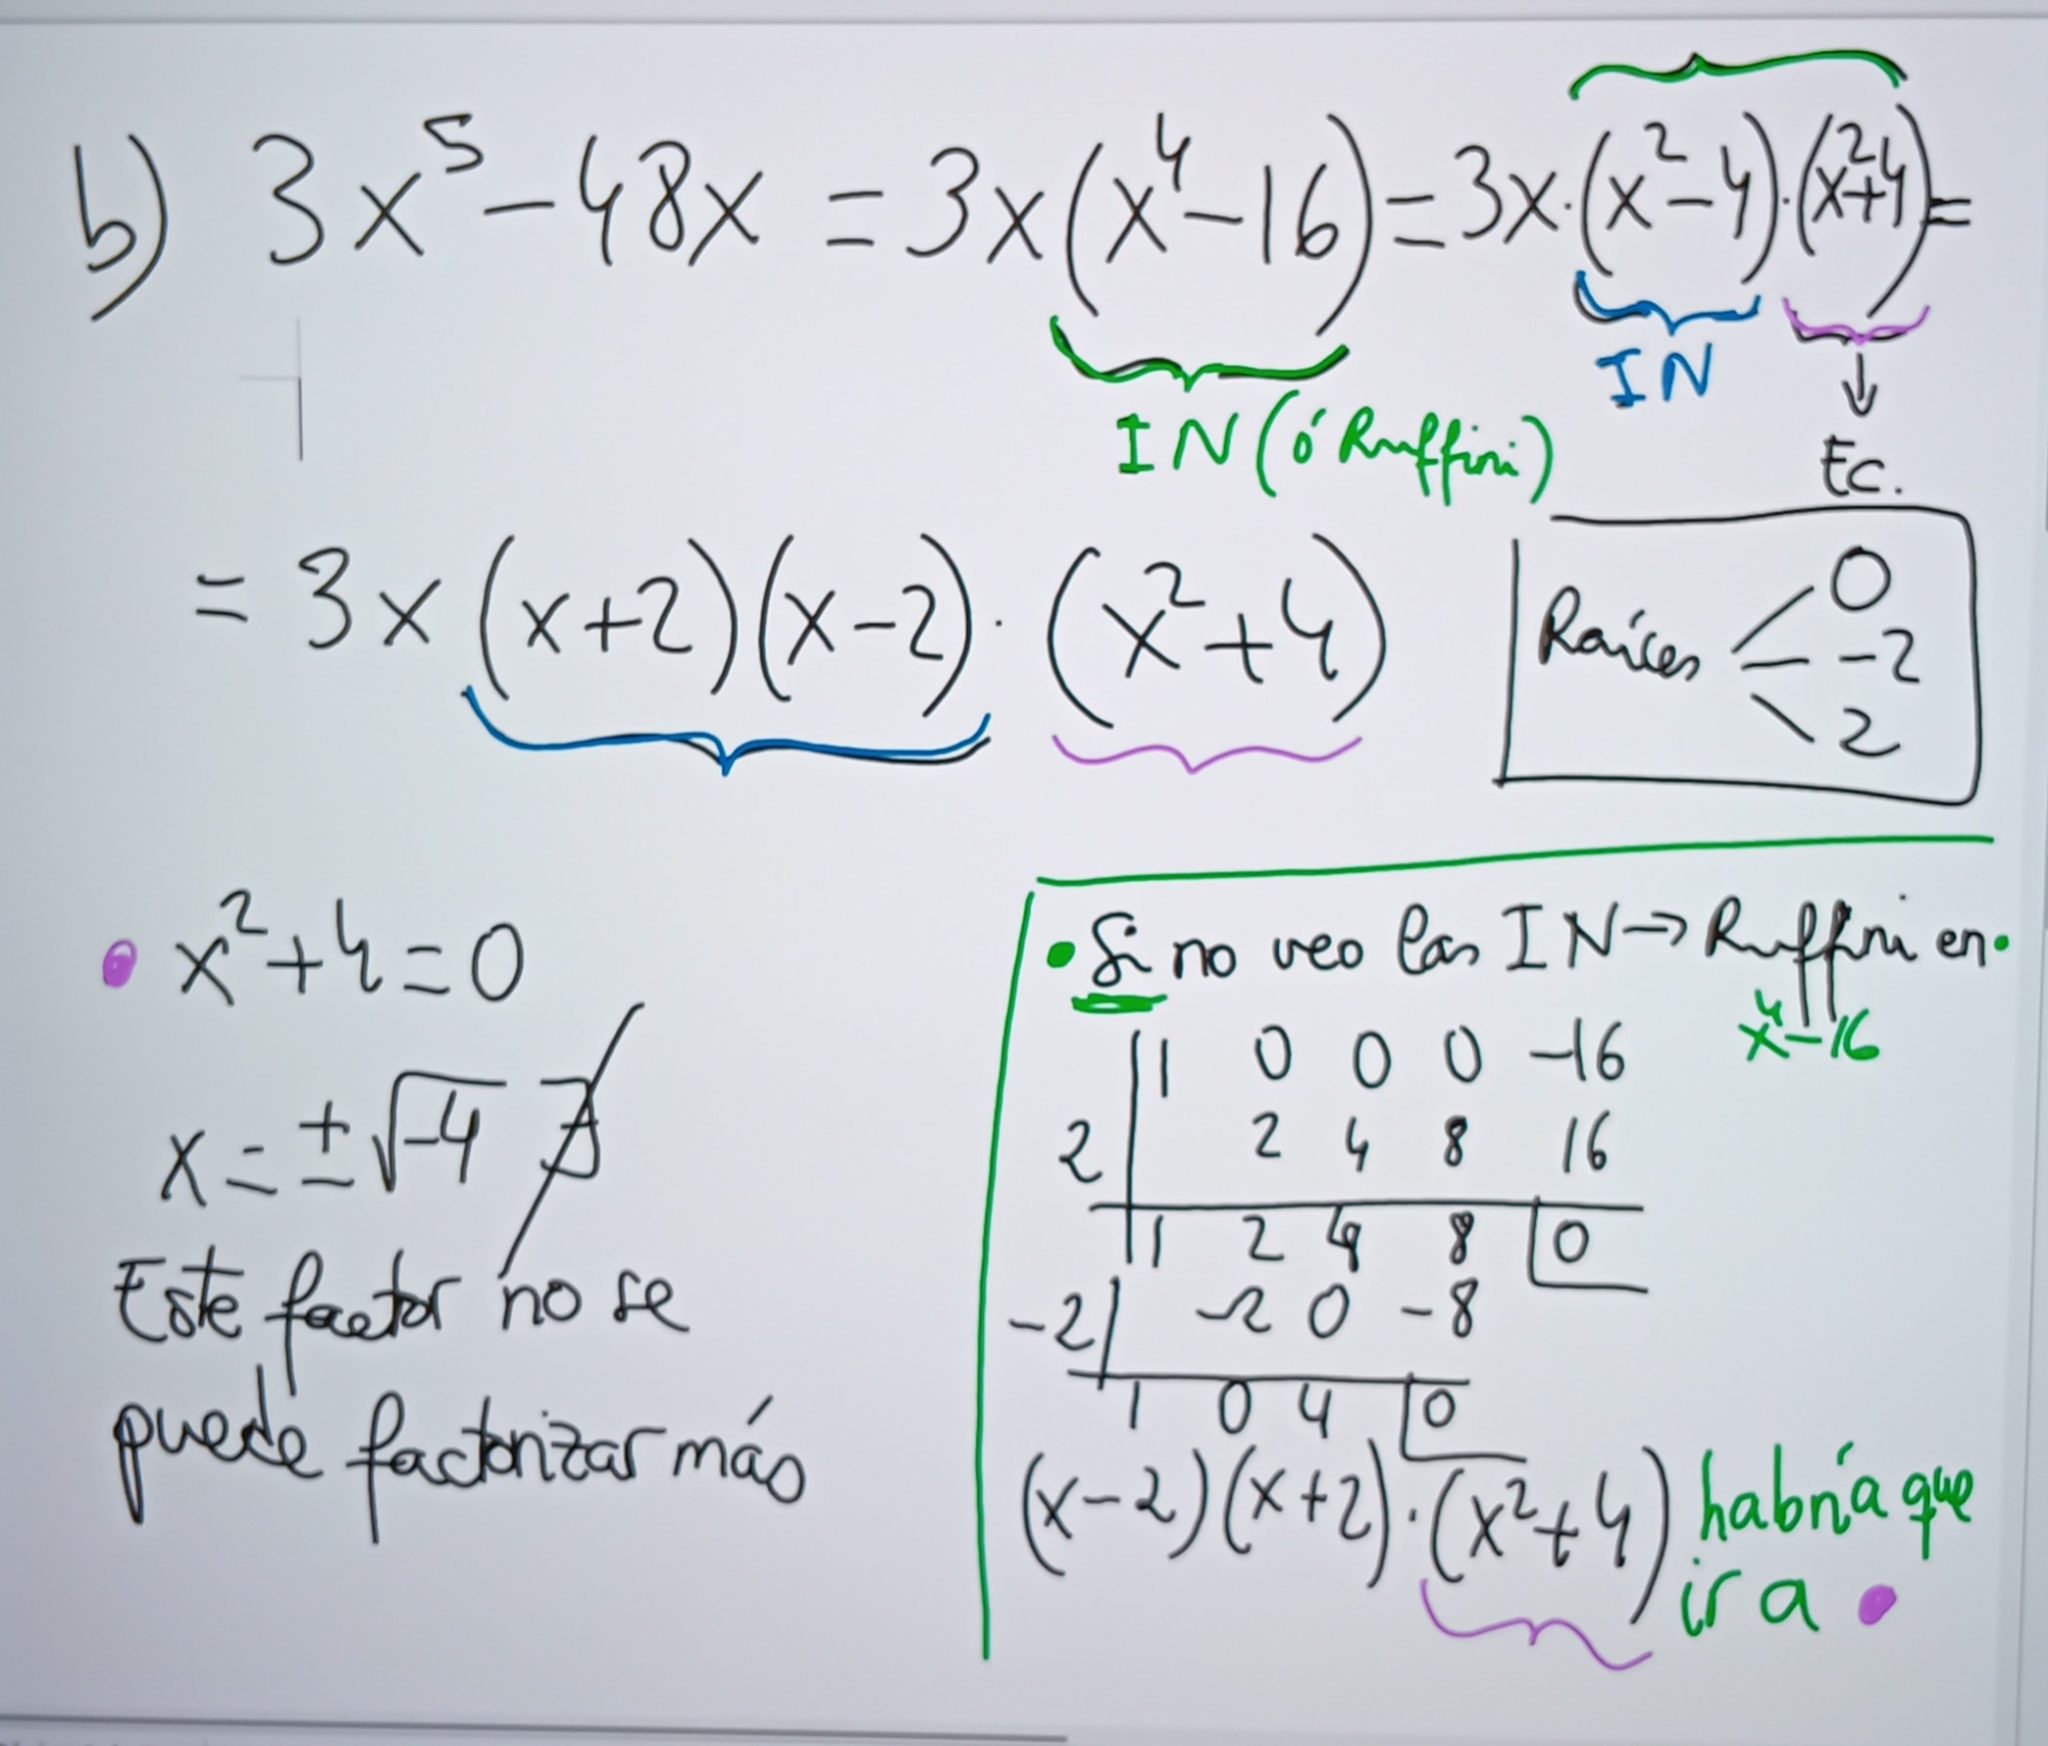 b) 3x⁵-48x = 3x(x⁴-16) = 3x·(x²-4)·(x²+4) =
IN (ó Ruffini)
IN
Ec.
= 3x(x+2)(x-2)·(x²+4)
Raíces
0
-2
2
x²+4=0
x=±√-4 ∄
Este factor no se
puede factorizar más
Si no veo las IN → Ruffini en
x⁴-16
1 0 0 0 -16
2 2 4 8 16
1 2 4 8 0
-2 -2 0 -8
1 0 4 0
(x-2)(x+2)·(x²+4) habría que
ir a